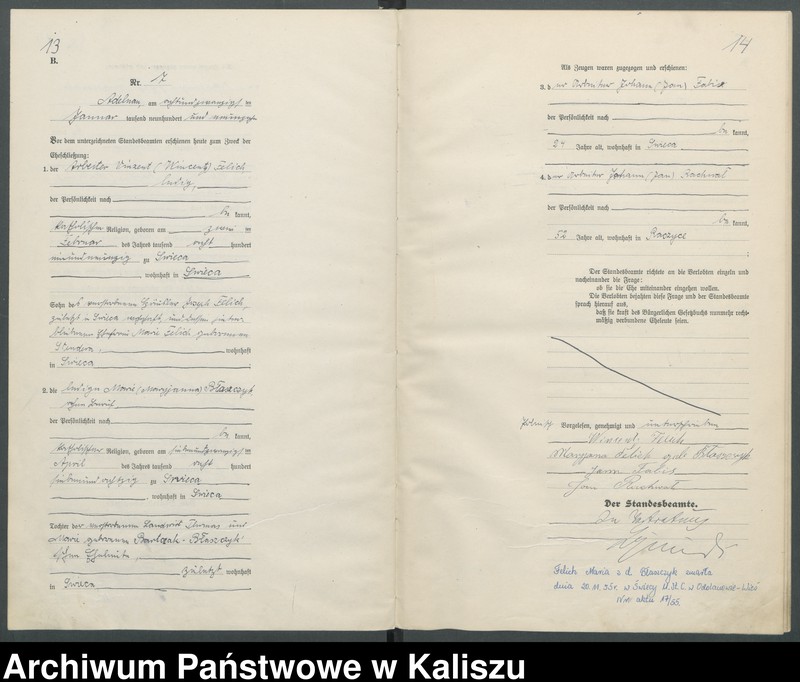 13
B.
Nr. 7
Adelnau am achtundzwanzigsten
Januar tausend neunhundert und neunzehn
Vor dem unterzeichneten Standesbeamten erschienen heute zum Zweck der
Eheschließung:
1. der Arbeiter Vinzent (Wincenty) Felich
ledig,
der Persönlichkeit nach
be kannt,
katholischer Religion, geboren am zweiten
Februar des Jahres tausend acht hundert
neunundneunzig zu Swieca
, wohnhaft in Swieca
Sohn des verstorbenen Joseph Felich
zuletzt in Swieca wohnhaft, und dessen hinter-
bliebenen Ehefrau Marie Felich geborenen
wohnhaft
in Swieca
2. die ledige Marie (Maryjanna) Błaszczyk
ohne Beruf,
der Persönlichkeit nach
be kannt,
katholischer Religion, geboren am siebenundzwanzigsten
April des Jahres tausend acht hundert
siebenundachtzig zu Swieca
, wohnhaft in Swieca
Tochter der verstorbenen Landwirt Thomas und
Marie geborenen Błaszczyk
schen Eheleute
zuletzt wohnhaft
in Swieca
14
Als Zeugen waren zugegen und erschienen:
3. der Arbeiter Johann (Jan)
der Persönlichkeit nach
be kannt,
Jahre alt, wohnhaft in Swieca
4. der Arbeiter Johann (Jan) Rachwał
der Persönlichkeit nach
be kannt,
52 Jahre alt, wohnhaft in Raczyce
;
Der Standesbeamte richtete an die Verlobten einzeln und
nacheinander die Frage:
ob sie die Ehe miteinander eingehen wollen.
Die Verlobten bejahten diese Frage und der Standesbeamte
sprach hierauf aus,
daß sie kraft des Bürgerlichen Gesetzbuchs nunmehr recht-
mäßig verbundene Eheleute seien.
Vorgelesen, genehmigt und unterschrieben
Wincenty Felich
Maryjana Felich geb. Błaszczyk
Jan
Jan Rachwał
Der Standesbeamte.
In Vertretung
Felich Maria z d. Błaszczyk zmarła
dnia 20.11.55r. w Świecy U.St.C. w Odolanowie-Wieś
Nr. aktu 17/55.
Archiwum Państwowe w Kaliszu